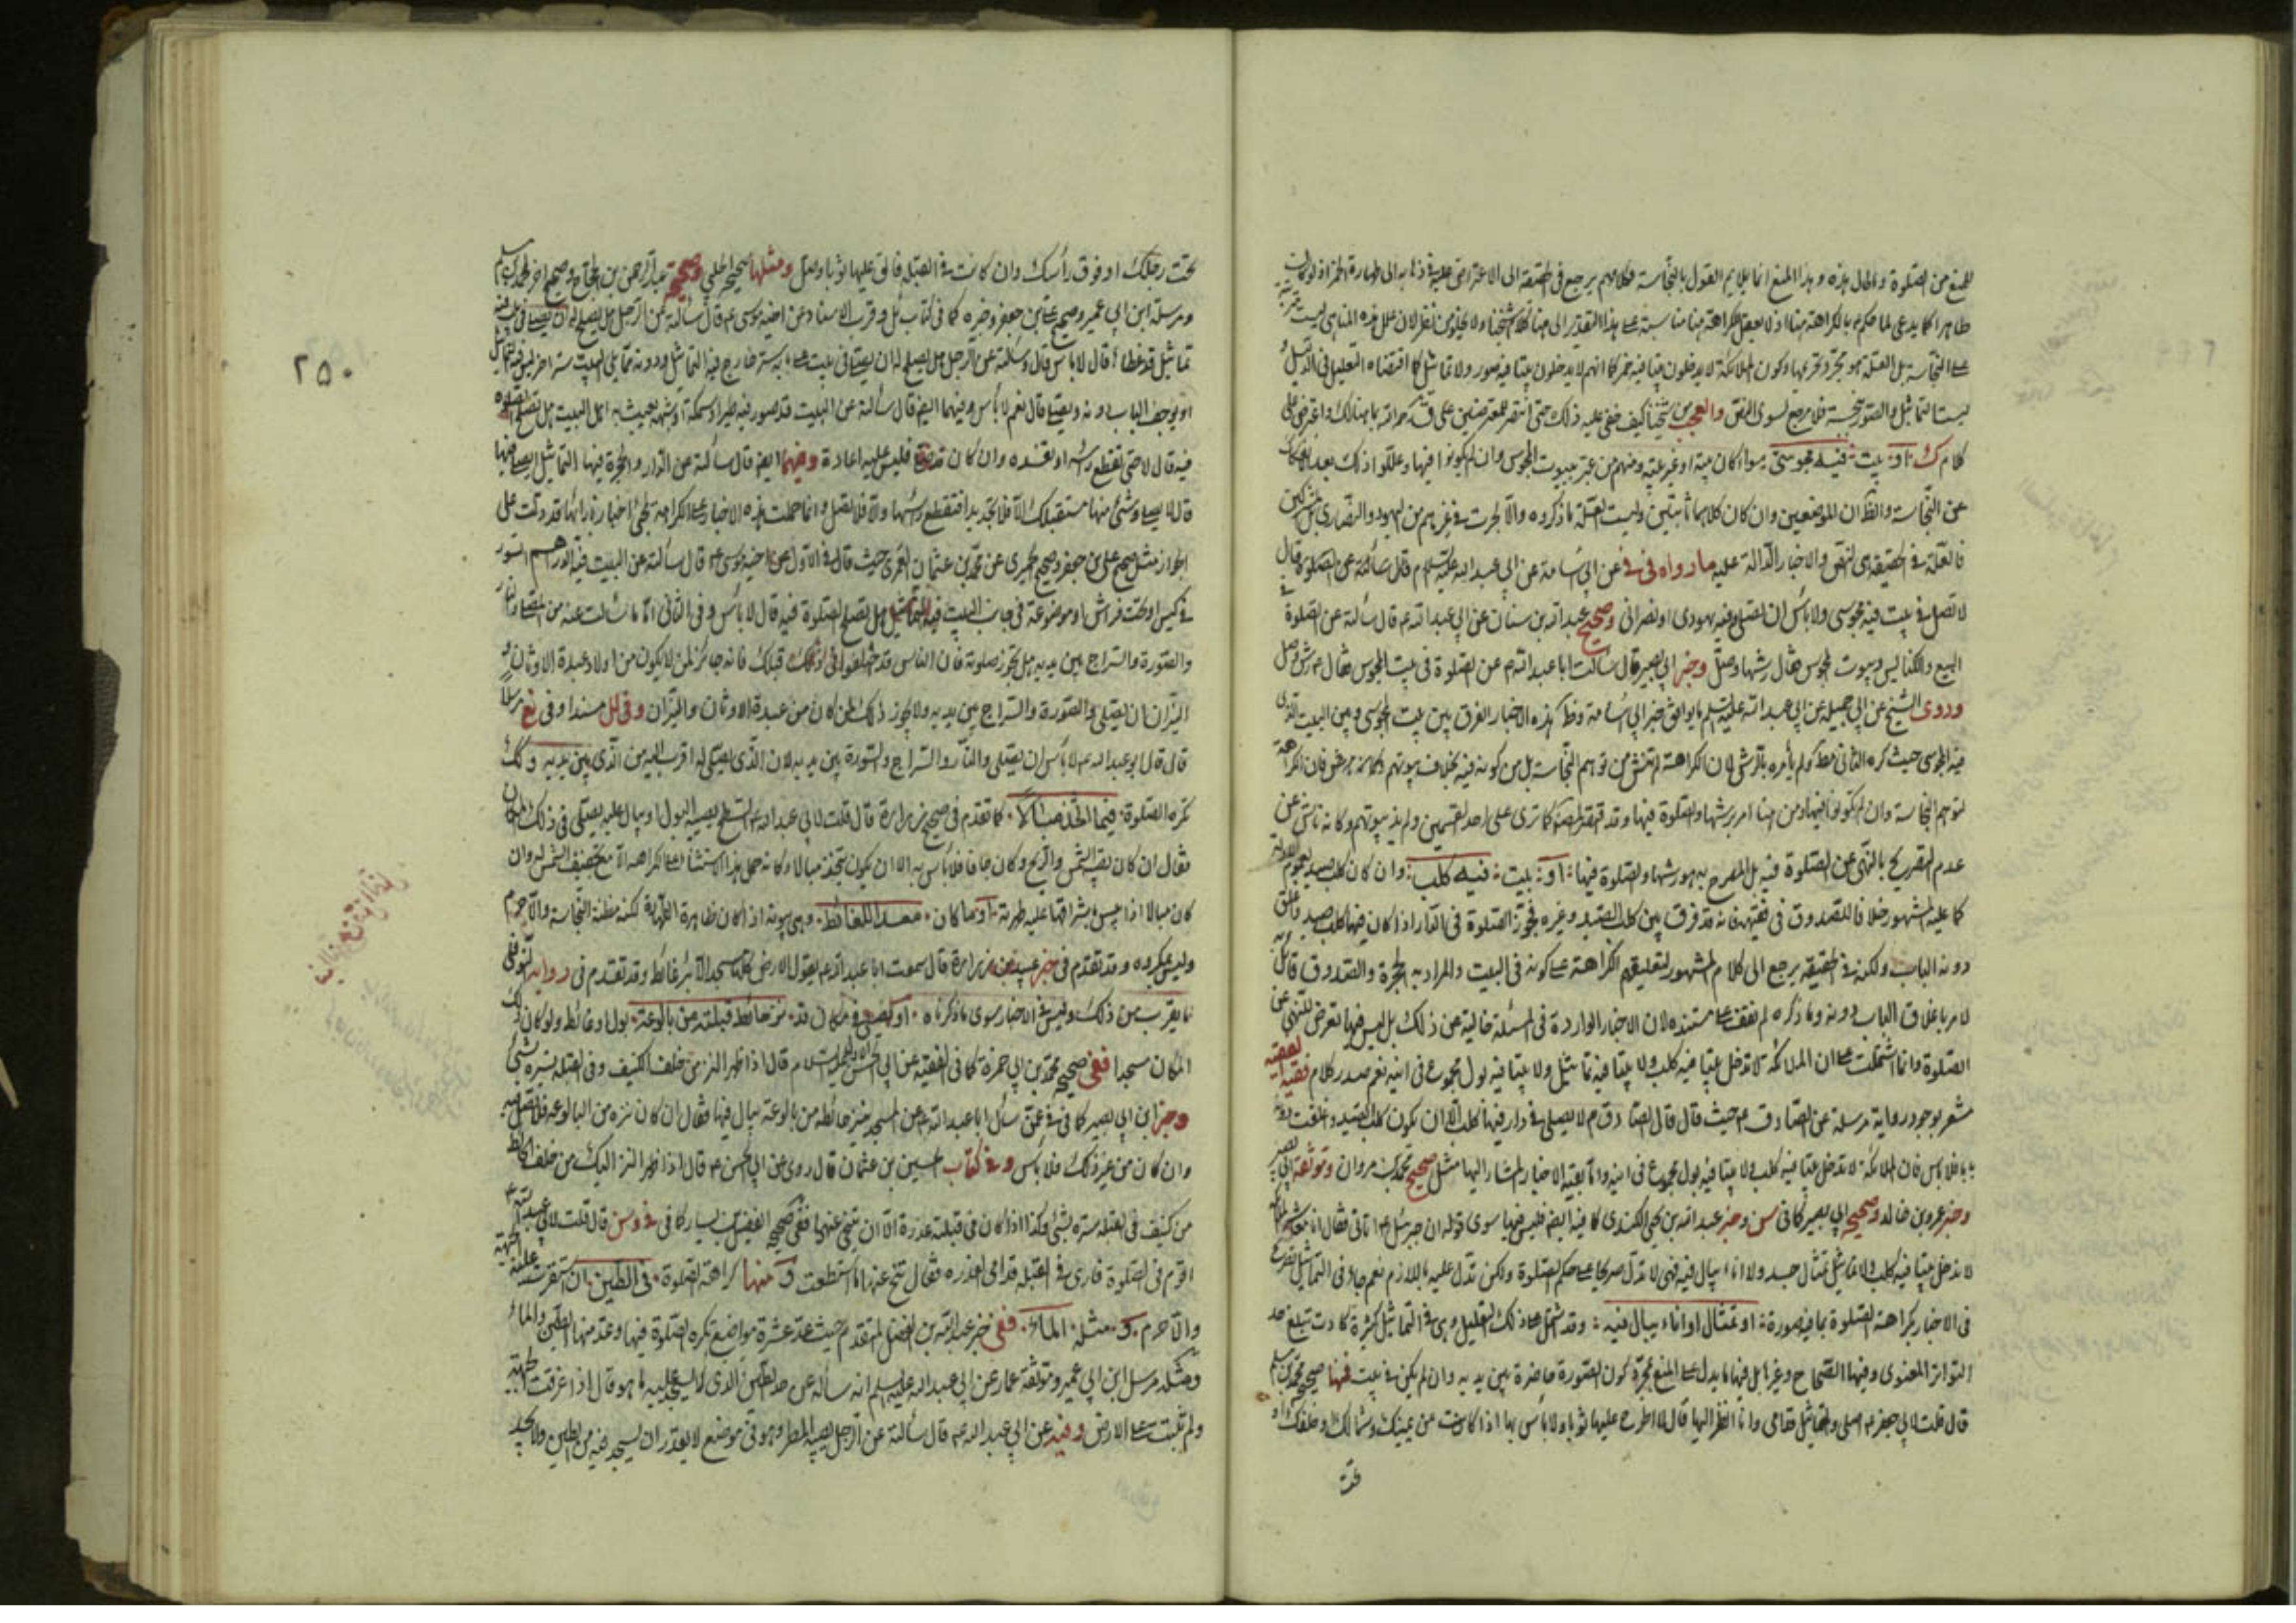 للمنع من الصلوة والحال هذه وهذا المنع انما يلايم القول بالنجاسة فكلامهم يرجع في الحقيقة الى الاعتراض عليه في ذهابه الى طهارة الخمر اذ لو كانت
ظاهرا كما يدعى لما حكم بالكراهة هنا اذ لا يعقل للكراهة هنا مناسبة على هذا التقدير الى هنا كلام شيخنا ولا يخلو من نظر لان علل هذه المناهي ليست
على النجاسة بل العلة هو مجرد تحريمها وكون الملائكة لا يدخلون بيتا فيه خمر كما انهم لا يدخلون بيتا فيه صور ولا تماثيل كما اقتضاه التعليل في الدليل و
ليست التماثيل والصور نجسة فلا مرجع لسوى النص والعجب من شيخنا كيف خفى عليه ذلك حتى انتصر للمعترضين على
كلام ك او بيت فيه مجوسى سواء كان بيته او غير بيته ومنهم من عبر ببيوت المجوس وان لم يكونوا فيها وعللوا ذلك بعدم الانفكاك
عن النجاسة والظ ان الموضعين وان كان كلاهما ثابتين وليست العلة ما ذكروه والا لجرت في غيرهم من اليهود والنصارى بل المشركين
فالعلة في الحقيقة هى النص والاخبار الدالة عليه ما رواه في في عن ابى اسامة عن ابى عبد الله عليه السلام قال سألته عن الصلوة قال
لا تصل في بيت فيه مجوسى ولا بأس ان تصلى وفيه يهودى او نصرانى وصحيح عبد الله بن سنان عن ابى عبد الله ع قال سألته عن الصلوة في
البيع والكنايس وبيوت المجوس فقال رشها وصل وخبر ابى بصير قال سألت ابا عبد الله ع عن الصلوة في بيت المجوس فقال رش وصل
وروى الشيخ عن ابى جميلة عن ابى عبد الله عليه السلم ما يوافق خبر ابى اسامة وظ هذه الاخبار الفرق بين بيت المجوسى وبين البيت الذى
فيه المجوسى حيث كره الثانى مط ولم يأمره بالرش لان الكراهة لم تنش من توهم النجاسة بل من كونه فيه بخلاف بيوتهم فان الكراهة
لتوهم النجاسة وان لم يكونوا فيها ومن هنا امر برشها والصلوة فيها وقد اقتصر المصنف كما ترى على احد القسمين ولم يذكر بيوتهم وكانه ناش عن
عدم التصريح بالنهى عن الصلوة فيه بل المصرح به هو رشها والصلوة فيها او بيت فيه كلب وان كان كلب صيد لعموم الادلة
كما عليه المشهور خلافا للصدوق في فقيهه فانه قد فرق بين كلب الصيد وغيره فجوز الصلوة في الدار اذا كان فيها كلب صيد واغلق
دونه الباب ولكنه في الحقيقة يرجع الى كلام المشهور لتعليقهم الكراهة على كونه في البيت والمراد به الحجرة والصدوق قائل به
لامره باغلاق الباب دونه وما ذكره لم نقف على مستنده لان الاخبار الواردة في المسئلة خالية عن ذلك بل ليس فيها تعرض للنهى عن
الصلوة وانما اشتملت على ان الملائكة لا تدخل بيتا فيه كلب ولا بيتا فيه تماثيل ولا بيتا فيه بول مجموع في انية نعم صدر كلام فقيه الفقيه
مشعر بوجود رواية مرسلة عن الصادق ع حيث قال قال الصادق ع لا يصلى في دار فيها كلب الا ان يكون كلب الصيد واغلقت دونه
بابا فلا بأس فان الملائكة لا تدخل بيتا فيه كلب ولا بيتا فيه بول مجموع في انية واما بقية الاخبار المشار اليها مثل صحيح محمد بن مروان وموثقة ابى بصير
وخبر عمرو بن خالد وصحيح ابى بصير كما في سن وخبر عبد الله بن يحيى الكندى كما فيه ايضا فليس فيها سوى قوله ان جبرئيل ع اتانى فقال انا معشر الملائكة
لا ندخل بيتا فيه كلب ولا تماثيل تمثال جسد ولا اناء يبال فيه فهى لا تدل صريحا على حكم الصلوة ولكن تدل عليه باللازم نعم جاء في التماثيل تصريح
في الاخبار بكراهة الصلوة بما فيه صورة او تمثال او اناء يبال فيه وقد اشتمل على ذلك التعليل وهى في التماثيل كثيرة كادت تبلغ حد
التواتر المعنوى وفيها الصحاح وغيرها بل فيها ما يدل على المنع بمجرد كون الصورة حاضرة بين يديه وان لم يكن في بيت فمنها صحيح محمد بن مسلم
قال قلت لابى جعفر ع اصلى والتماثيل قدامى وانا انظر اليها قال لا اطرح عليها ثوبا ولا بأس بها اذا كانت عن يمينك وشمالك وخلفك او
تحت
٢٥٠
تحت رجلك او فوق رأسك وان كانت في القبلة فالق عليها ثوبا وصل ومثلها صحيح الحلبى وصحيح عبد الرحمن بن الحجاج وصحيح اخر لمحمد بن مسلم
ومرسلة ابن ابى عمير وصحيح على بن جعفر وغيره كما في كتاب ئل وقرب الاسناد عن اخيه موسى ع قال سألته عن الرجل هل يصلح له ان يصلى في بيت فيه
تماثيل قد غطاه قال لا بأس قال وسألته عن الرجل هل يصلح له ان يصلى في بيت على بابه ستر خارج فيه التماثيل ودونه مما يلى البيت ستر اخر ليس فيه تماثيل
او يوجف الباب دونه ويصلى قال نعم لا بأس وفيهما ايضا قال سألته عن البيت قد صور فيه طير او سمكة او شبهه يعبث به اهل البيت هل تصلح الصلوة
فيه قال لا حتى تقطع رأسه او تفسده وان كان قد صلى فليس عليه اعادة وفيهما ايضا قال سألته عن الدار والحجرة فيها التماثيل ايصلى فيها
قال لا يصلى وشئ منها مستقبلك الا ان لا تجد بدا فتقطع رؤسها والا فلا تصل وانما حملت هذه الاخبار على الكراهة لمجئ اخبار بازائها قد دلت على
الجواز مثل صحيح على بن جعفر وصحيح الحميرى عن محمد بن عثمان العمرى حيث قال في الاول عن اخيه موسى ع قال سألته عن البيت فيه الدراهم السود
في كيس او تحت فراش او موضوعة في جانب البيت فيه التماثيل هل تصلح الصلوة فيه قال لا بأس وفي الثانى اما ما سئلت عنه من المصلى والنار
والصورة والسراج بين يديه هل تجوز صلوته فان الناس قد اختلفوا في ذلك قبلك فانه جائز لمن لا يكون من اولاد عبدة الاوثان و
النيران ان يصلى والصورة والسراج بين يديه ولا يجوز ذلك لمن كان من عبدة الاوثان والنيران وفي لل مسندا وفي يع مرسلا
قال قال ابو عبد الله ع لا بأس ان يصلى والنار والسراج والصورة بين يديه لان الذى يصلى له اقرب اليه من الذى بين يديه وكذلك
تكره الصلوة فيما اتخذ مبالا كما تقدم في صحيح زرارة قال قلت لابى عبد الله ع السطح يصيبه البول او يبال عليه يصلى في ذلك المكان
فقال ان كان تصيبه الشمس والريح وكان جافا فلا بأس به الا ان يكون يتخذ مبالا وكانه حمل هذا الاستثناء على الكراهة الا مع تجفيف الشمس له وان
كان مبالا اذا يبس باشراقها عليه طهرته او ما كان معدا للغائط وهى بيوته اذا كان ظاهره الطهارة لكنه مظنة النجاسة والا حرم
وليس بمكروه وقد تقدم في خبر عبيد بن زرارة قال سمعت ابا عبد الله ع يقول الارض كلها مسجد الا بئر غائط وقد تقدم في رواية النوفلى
ما يقرب من ذلك وليس في الاخبار سوى ما ذكرناه او يصلى في مكان قد نز حائط قبلته من بالوعة بول او غائط ولو كان ذلك
المكان مسجدا ففي صحيح محمد بن ابى حمزة كما في الفقيه عن ابى الحسن الاول عليه السلام قال اذا ظهر النز من خلف الكنيف وفي القبلة يستره بشئ
وخبر ابن ابى نصر كما في في عمن سئل ابا عبد الله ع عن المسجد ينز حائطه من بالوعة يبال فيها فقال ان كان نزه من البالوعة فلا تصل فيه
وان كان من غير ذلك فلا بأس وفي كتاب حسين بن عثمان قال روى عن ابى الحسن ع قال اذا ظهر النز اليك من خلف الحائط
من كنيف في القبلة ستره بشئ وكذا اذا كان في قبلته عذرة الا ان يتنحى عنها ففي صحيح الفضيل بن يسار كما في في وسن قال قلت لابى عبد الله ع
اقوم في الصلوة فارى في القبلة قدامى العذرة فقال تنح عنها ما استطعت ومنها كراهة الصلوة في الطين ان استقرت عليه الجبهة
والا حرم و مثله الماء ففي خبر عبد الله بن الفضل المتقدم حيث عد عشرة مواضع تكره الصلوة فيها وعد منها الطين والماء
ومثله مرسل ابن ابى عمير وموثقة عمار عن ابى عبد الله عليه السلم انه سأله عن حد الطين الذى لا يسجد عليه ما هو قال اذا غرقت الجبهة
ولم تثبت على الارض وفيه عن ابى عبد الله ع قال سألته عن الرجل يصيبه المطر وهو في موضع لا يقدر ان يسجد فيه من الطين ولا يجد